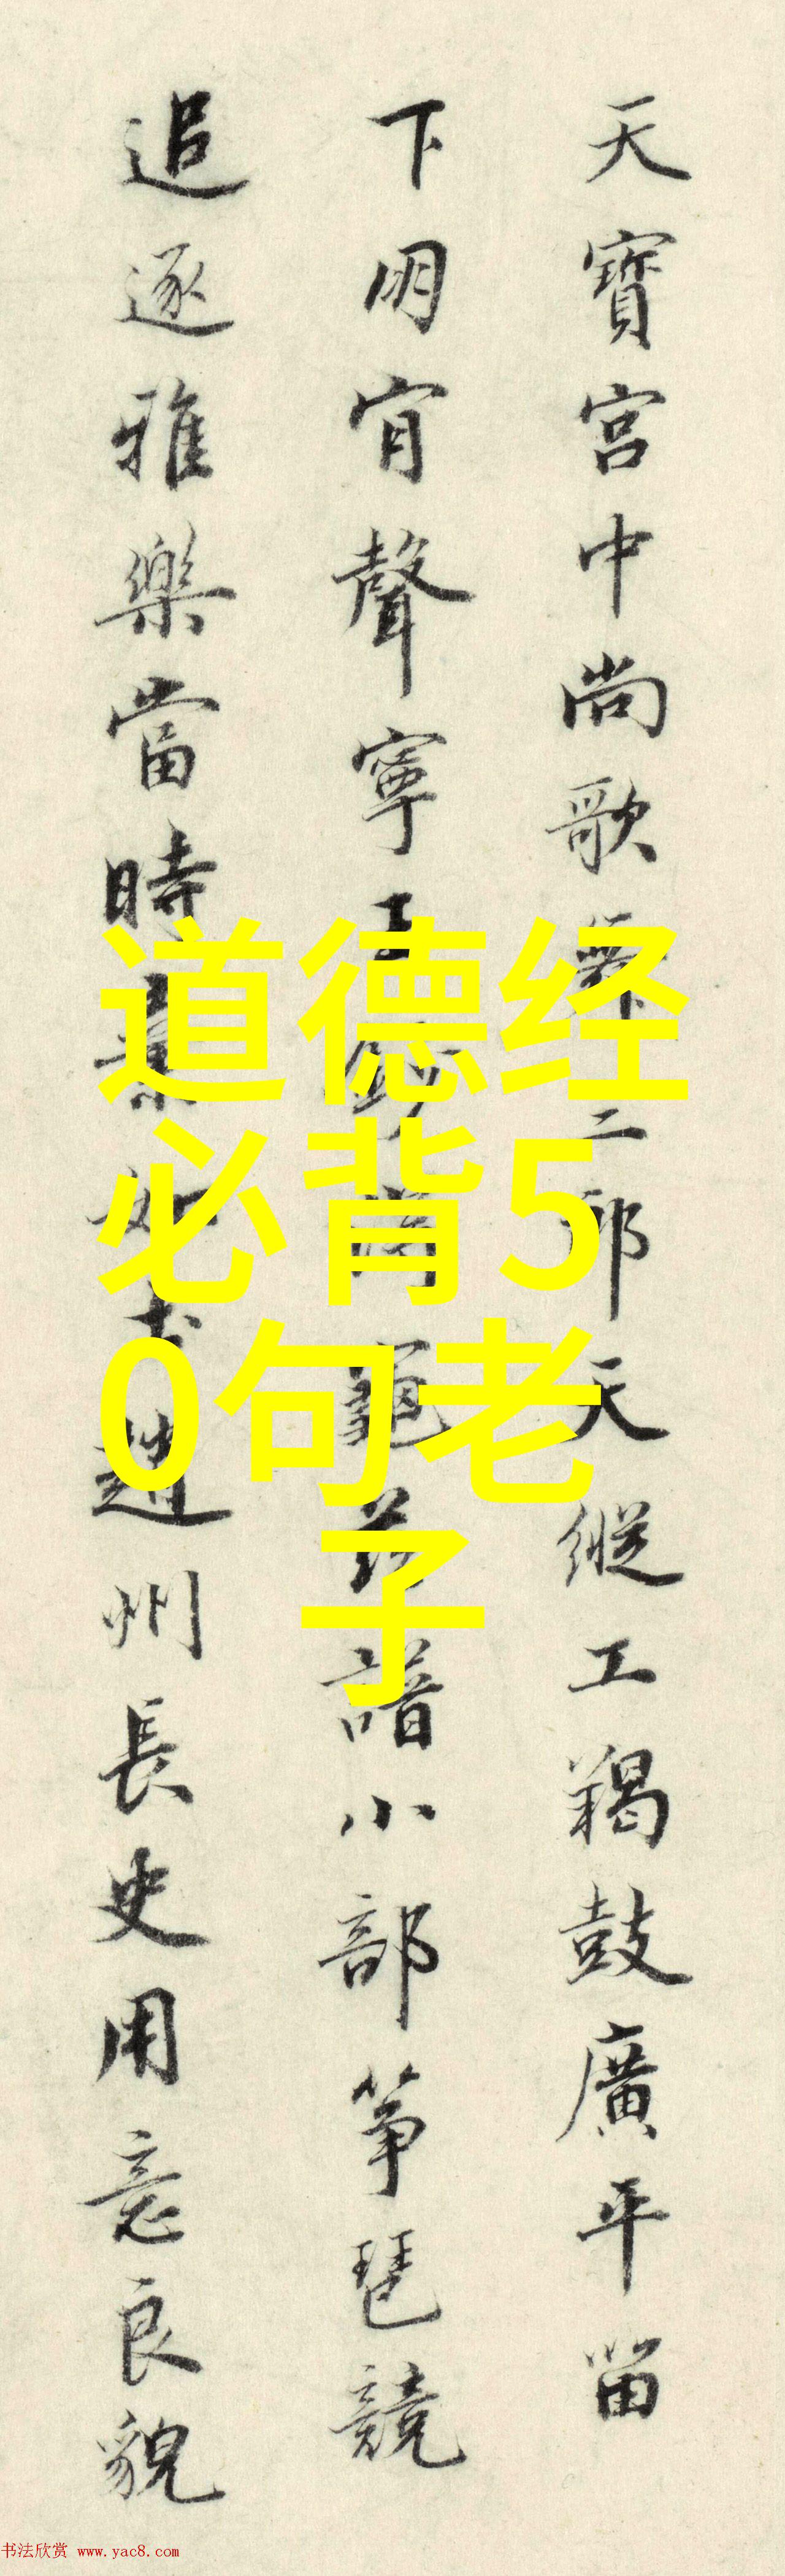 天寶宮中尚歌舞二郎天縱工羯鼓廣平留
下朋肎聲寧王賞龜茲譜小部箏琶競
追逐雅樂當時棄如土趙州長史用意良貌
道德经
必背5
0句老
子
书法欣赏 www.yac8.com